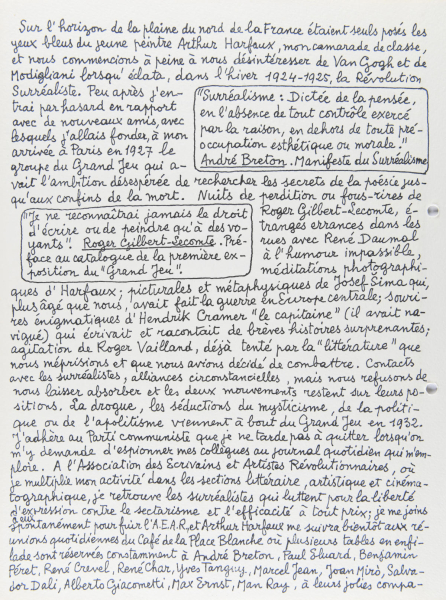 Sur l'horizon de la plaine du nord de la France étaient seuls posés les
yeux bleus du jeune peintre Arthur Harfaux, mon camarade de classe,
et nous commencions à peine à nous désintéresser de Van Gogh et de
Modigliani lorsqu'éclata, dans l'hiver 1924-1925, la Révolution
Surréaliste. Peu après j'en-
trai par hasard en rapport
avec de nouveaux amis, avec
lesquels j'allais fonder, à mon
arrivée à Paris en 1927 le
groupe du Grand Jeu qui a-
"Surréalisme : Dictée de la pensée,
en l'absence de tout contrôle exercé
par la raison, en dehors de toute pré-
occupation esthétique ou morale."
André Breton. Manifeste du Surréalisme
vait l'ambition désespérée de rechercher les secrets de la poésie jus-
qu'aux confins de la mort. Nuits de perdition ou fous-rires de
"Je ne reconnaîtrai jamais le droit
d'écrire ou de peindre qu'à des vo-
yants". Roger Gilbert-Lecomte. Pré-
face au catalogue de la première ex-
position du "Grand Jeu".
Roger Gilbert-Lecomte, é-
tranges errances dans les
rues avec René Daumal
à l'humour impassible,
méditations photographi-
ques d'Harfaux ; picturales et métaphysiques de Josef Sima qui,
plus âgé que nous, avait fait la guerre en Europe centrale ; souri-
res énigmatiques d'Hendrik Cramer "le capitaine" (il avait na-
vigué) qui écrivait et racontait de brèves histoires surprenantes ;
agitation de Roger Vailland, déjà tenté par la "littérature" que
nous méprisions et que nous avions décidé de combattre. Contacts
avec les surréalistes ; alliances circonstancielles, mais nous refusons de
nous laisser absorber et les deux mouvements restent sur leurs po-
sitions. La drogue, les séductions du mysticisme, de la politi-
que ou de l'apolitisme viennent à bout du Grand Jeu en 1932.
J'adhère au Parti communiste que je ne tarde pas à quitter lorsqu'on
m'y demande d'espionner mes collègues au journal quotidien qui m'em-
ploie. A l'Association des Ecrivains et Artistes Révolutionnaires, où
je multiplie mon activité dans les sections littéraire, artistique et cinéma-
tographique, je retrouve les surréalistes qui luttent pour la liberté
d'expression contre le sectarisme et l'efficacité à tout prix ; je me joins
à eux
spontanément pour fuir l'A.E.A.R. et Arthur Harfaux me suivra bientôt aux ré-
unions quotidiennes du Café de la Place Blanche où plusieurs tables en enfi-
lade sont réservées constamment à André Breton, Paul Eluard, Benjamin
Péret, René Crevel, René Char, Yves Tanguy, Marcel Jean, Joan Miró, Salva-
dor Dali, Alberto Giacometti, Max Ernst, Man Ray, à leurs jolies compa-